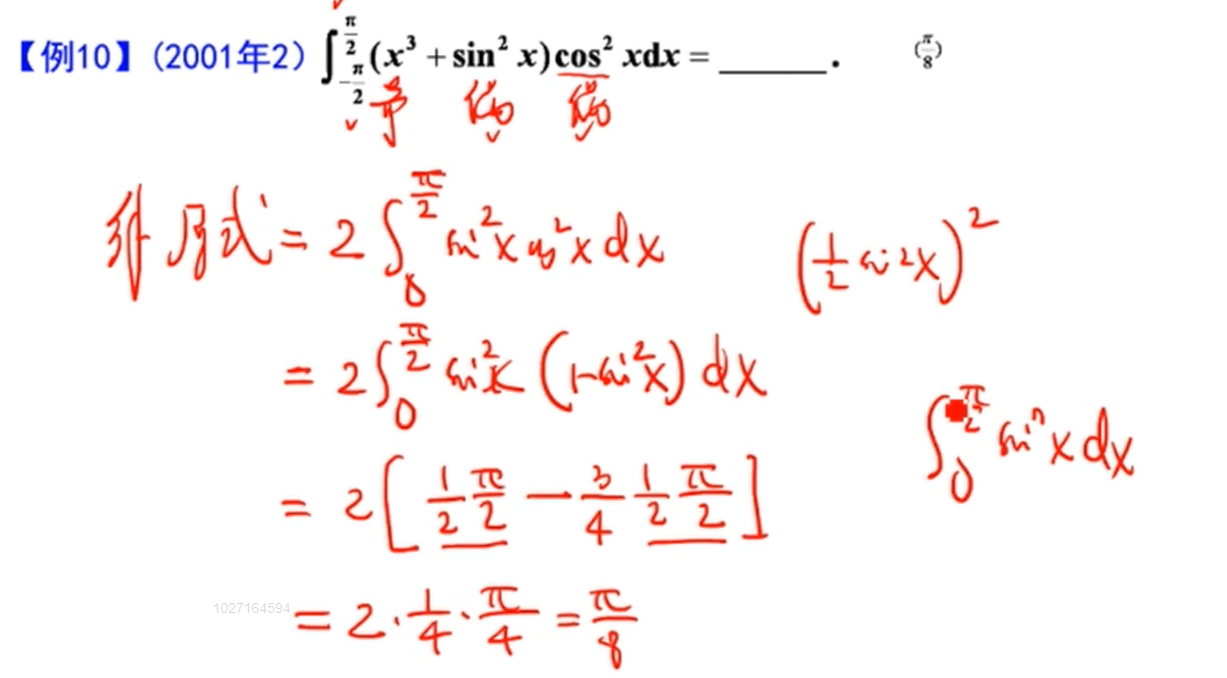 【例10】(2001年2) ∫_{-π/2}^{π/2} (x³ + sin² x)cos² xdx = ______. (π/8)
奇 偶 偶
解 原式 = 2∫_0^{π/2} sin²x cos²x dx (1/2 sin 2x)²
= 2∫_0^{π/2} sin²x (1-sin²x) dx
∫_0^{π/2} sinⁿ x dx
= 2[1/2 π/2 - 3/4 1/2 π/2]
1027164594
= 2·1/4·π/4 = π/8